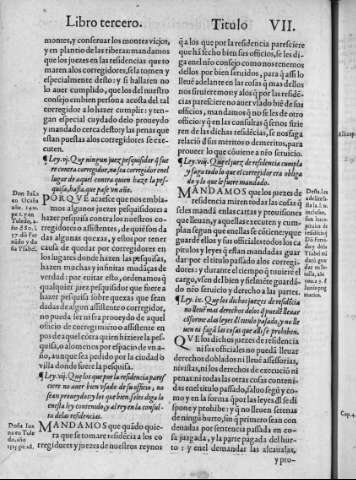 Libro tercero.
Titulo VII.
montes, y conseruar los montes viejos,
y en plantio de las riberas: mandamos
que los juezes en las residencias que to
maren a los corregidores, se la tomen y
especialmente dello: y si hallaren no
lo auer cumplido, que los del nuestro
consejo embien persona a costa del tal
corregidor a lo hazer cumplir: y ten-
gan especial cuydado delo proueydo
y mandado cerca desto: y las penas que
estan puestas a los corregidores se exe-
cuten.
¶ Ley.vj. Que ningun juez pesquisidor q̃ fue
re contra corregidor, no sea corregidor en el
lugar de aquel contra quien haze la pes-
quisa, hasta que passe vn año.
Don Iuã
en Ocaña
año
PORQVE acaesce que nos embia-
mos algunos juezes pesquisidores a
hazer pesquisa contra los nuestros co-
rregidores o assistentes, de quiẽ son da
das algunas quexas, y estos por tener
causa de quedar por corregidores en
los lugares donde hazen las pesquisas,
hazen muchas y infinitas mudaças de
verdad: por euitar esto, ordenamos q̃
qualquier juez pesquisidor que fuere a
hazer pesquisa sobre quexas que sean
dadas de algun assistente o corregidor,
no pueda ser ni sea proueydo de aquel
officio de corregimiẽto o assistente en
pos de aquel contra quien hiziere la pes
quisa, o alomenos por espacio de vn a-
ño, aunque sea pedido por la ciudad o
villa donde fuere la pesquisa.
¶ Ley.vij. Que los que por la residencia pares
ciere no auer bien vsado de su officio, no
sean proueydos: y los que bien, se les diga lo
en esta ley contenido, y al rey en la consul-
ta delas residencias.
Doña Iua
na en Tole
do, año
MANDAMOS que quãdo quie-
ra que se tomare residẽcia a los co
rregidores y juezes de nuestros reynos
q̃ a los que por la residencia paresciere
que hã fecho biẽ sus officios, se les di-
ga enel nr̃o consejo como nos tenemos
dellos por bien seruidos, para q̃ assi lo
lleuẽ adelante en las cosas que mas de
nos siruieremos: y a los que por las residẽ
cias paresciere no auer vsado biẽ de sus
officios, mandamos que no se les den o-
tros: y q̃ en las consultas q̃ se nos fizie
ren de las dichas residẽcias, se nos faga
relaciõ de sus meritos o demeritos, para
proueer lo que cõuiene a nr̃o seruicio.
¶ Ley.viij. Que el juez de residencia cumpla
y faga todo lo que el corregidor era obliga
do y a lo que le fuere mandado.
MANDAMOS que los juezes de
residencia miren todas las cosas q̃
se les mandã en las cartas y prouisiones
que lleuan, y aquellas se executen y cum
plan segun que en ellas se cõtiene: y que
guarde ellos y sus officiales todos los ca
pitulos y leyes q̃ estan mandadas guar
dar por el titulo passado a los corregi-
dores: y durante el tiempo q̃ tuuiere el
cargo, vsen del bien y fielmẽte guardã
do nr̃o seruicio y derecho a las partes.
¶ Ley.ix. Que los dichos juezes de residẽcia
no lleuẽ mas derechos delos q̃ puedẽ lleuar
cõforme a las leyes d̃l titulo passado, y no lle
uen ni fagã las cosas que alli se prohiben.
QVE los dichos juezes de residencia
ni sus officiales no puedã lleuar
derechos doblados ni lleuẽ assessorias,
ni vistas, ni los derechos de execuciõ ni
penas: ni todas las otras cosas conteni-
das enel titulo passado, saluo segũ y co-
mo y en la forma q̃ por las leyes d̃l se di
spone y prohibe: y q̃ no lleuen setenas
de ningũ hurto, sin q̃ primero sean con
denadas por sentencia passada en co-
sa juzgada, y la parte pagada del hur-
to: y enel demandar las alcaualas,
y pro-
Cap.4.